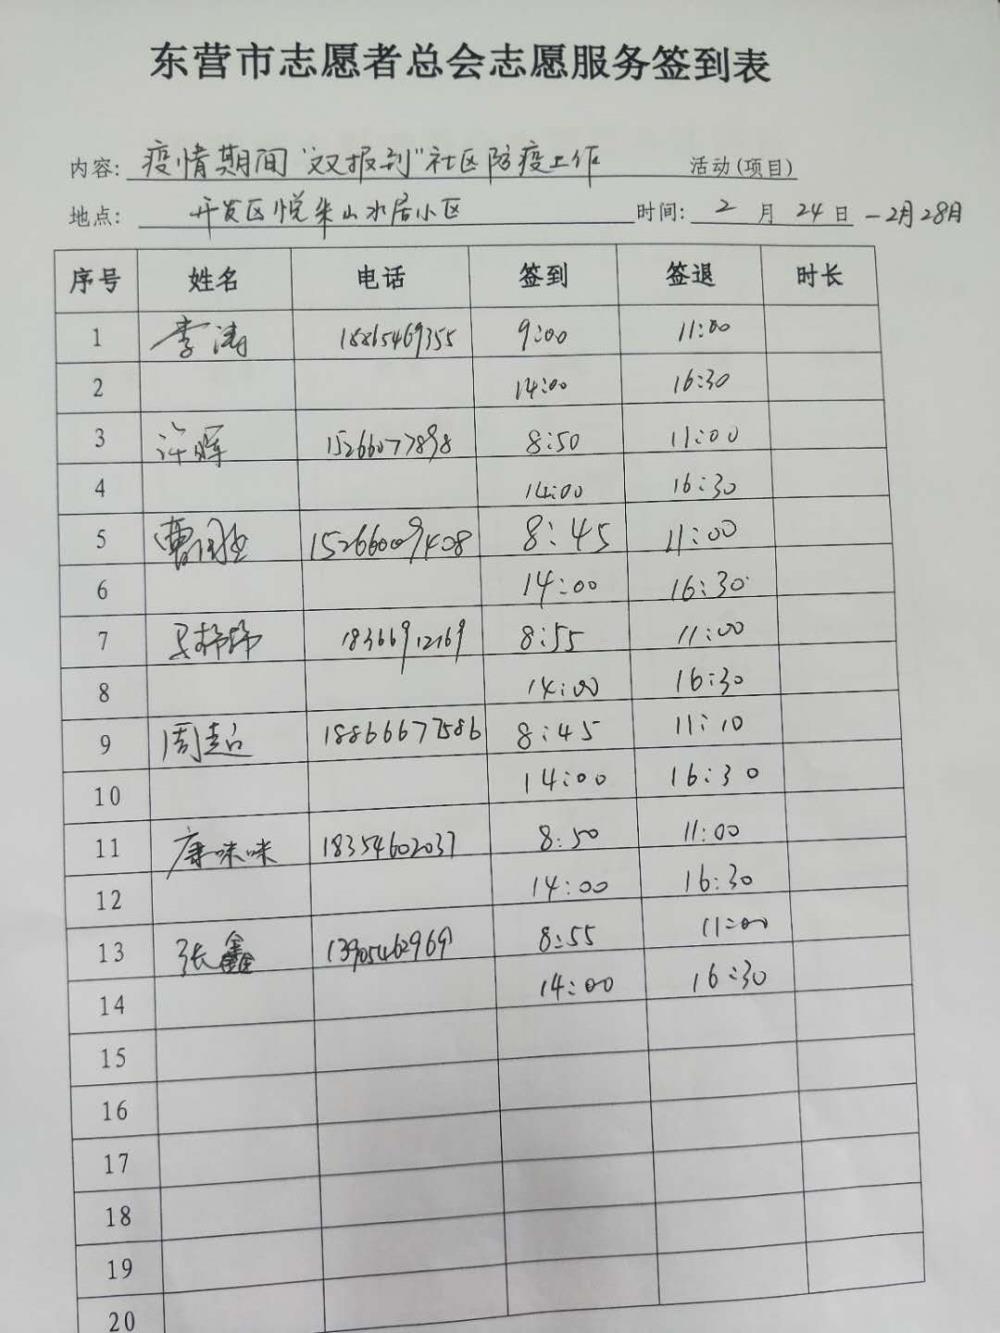 东营市志愿者总会志愿服务签到表
内容: 疫情期间"双报到"社区防疫工作 活动(项目)
地点: 开发区悦来山水居小区 时间: 2 月 24 日 -2月28日
序号 姓名 电话 签到 签退 时长
1 李涛 18865469355 9:00 11:00
2 14:00 16:30
3 许晖 15266077898 8:50 11:00
4 14:00 16:30
5 曹 15266009408 8:45 11:00
6 14:00 16:30
7 18366912169 8:55 11:00
8 14:00 16:30
9 周超 18866677586 8:45 11:10
10 14:00 16:30
11 康咪咪 18354602037 8:50 11:00
12 14:00 16:30
13 张鑫 13905462969 8:55 11:00
14 14:00 16:30
15
16
17
18
19
20